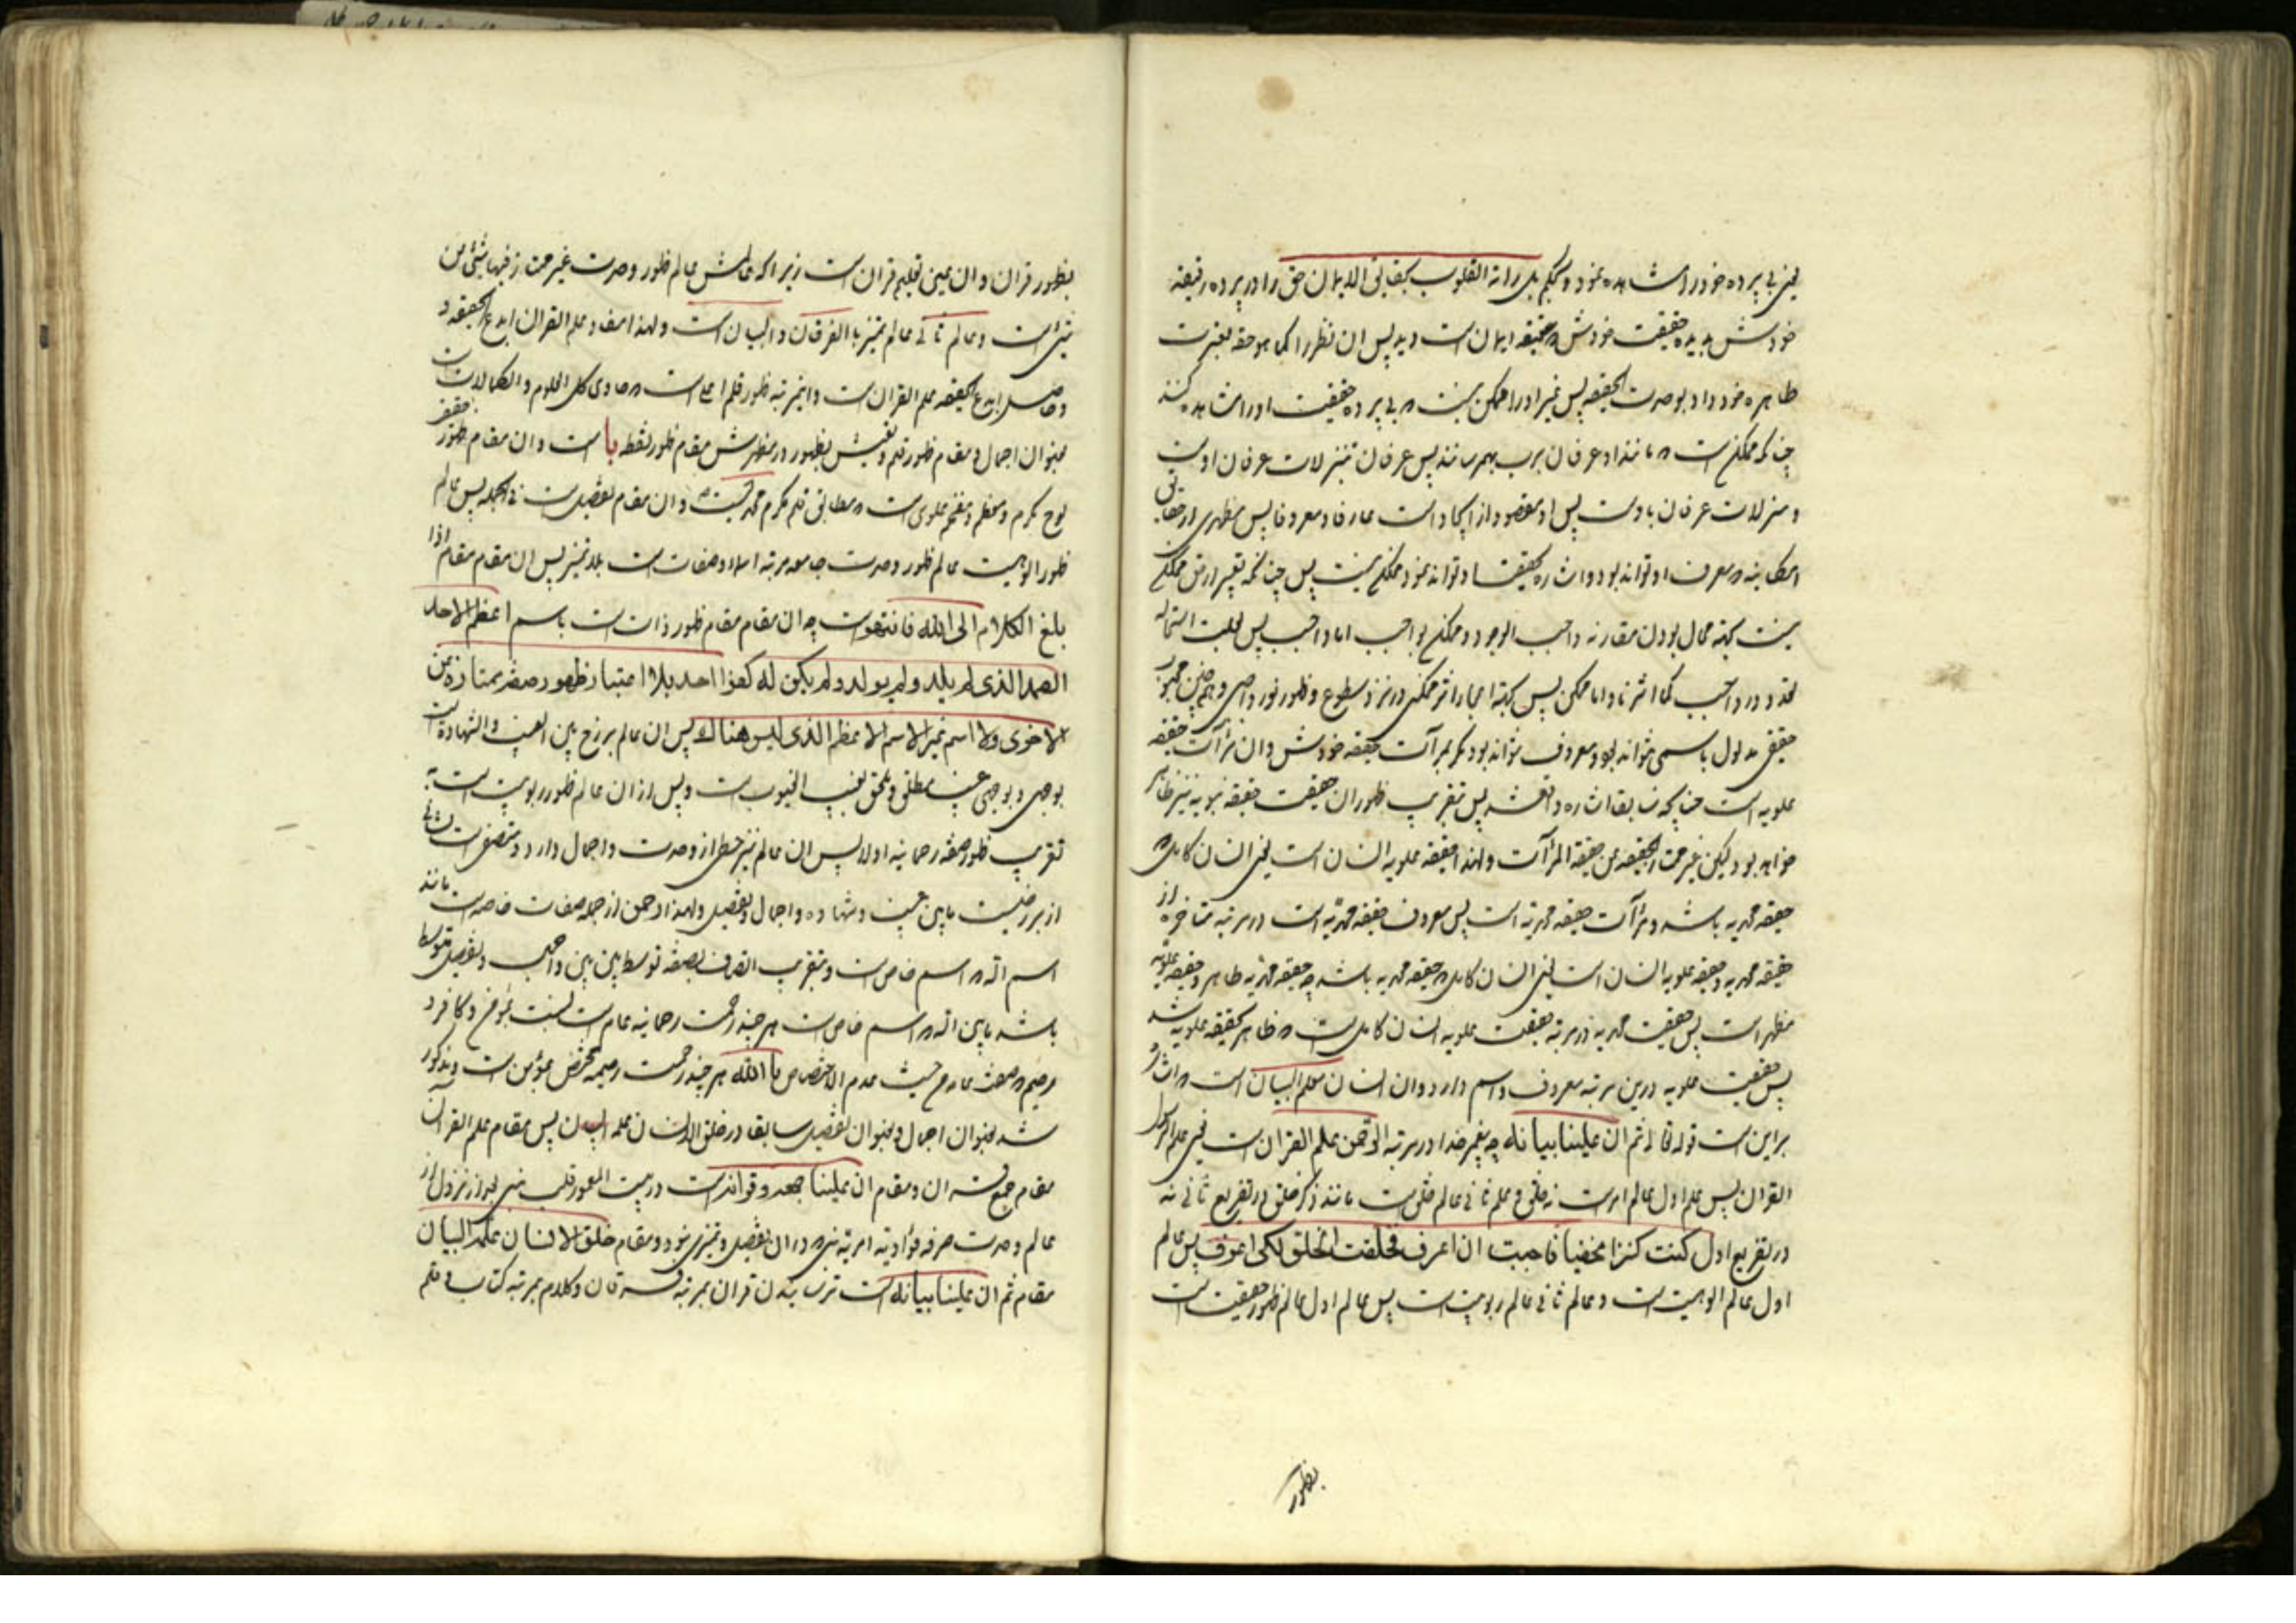 یعنی بی پرده خود را مشاهده نمود و بحکم بل راته القلوب بحقایق الایمان حق را در پرده رقیقه
خودش بدیده حقیقت خودش که حقیقه ایمان است دید پس ان نظر را کما هو حقه بغیرت
ظاهره خود داد بوحدت الحقیقه پس غیر او را ممکن نیست که بی پرده حقیقت او را مشاهده کنند
چنانکه ممکن است که مانند او عرفان برب بهمرسانند پس عرفان تنزلات عرفان اوست
و منزلات عرفان باوست پس او مقصود از ایجاد است عارفا و معروفا پس مظهری از حقایق
امکانیه که معرف او تواند بود و اشاره بحقیقت او تواند نمود ممکن نیست پس چنانکه تغییر از من ممکن
نیست بجهته محال بودن مقارنه واجب الوجود و ممکن بواجب اما واجب پس بعلت استحاله
تعدد در واجب کما اشرنا و اما ممکن پس بجهته انمحاء اثر ممکن در نزد سطوع و ظهور نور واجبی و همچنین محبوب
حقیقی مدلول باسمی نتواند بود و معروف نتواند بود مگر بمرآت حقیقه خودش و ان مرآت حقیقه
علویه است چنانچه سابقا اشاره رفته شد پس بتقریب ظهور ان حقیقت حقیقه نبویه نیز ظاهر
خواهد بود لیکن غیر تحت الحقیقه عن حقیقة المرآت و لهذا حقیقه علویه انسان است یعنی انسان کامل که
حقیقه محمدیه باشد و مرآت حقیقه محمدیه است پس معروف حقیقه محمدیه است در مرتبه متاخره از
حقیقه محمدیه و حقیقه علویه انسان است یعنی انسان کامل که حقیقه محمدیه باشد چه حقیقه محمدیه ظاهر و حقیقه علویه
مظهر است پس حقیقت محمدیه در مرتبه حقیقت علویه انسان کامل است که ظاهر بحقیقه علویه شد
پس حقیقت علویه درین مرتبه معروف و اسم دارد و ان انسان معلم البیان است که اشاره
براین است قوله تعالی ثم ان علینا بیانه چه پیغمبر خدا در مرتبه الرحمن علم القران است یعنی علم الرحمن
القران پس علم اول عالم امر است نه خلق و علم ثانی عالم خلق است مانند ذکر خلق در تفریع ثانی نه
در تفریع اول کنت کنزا مخفیا فاحببت ان اعرف فخلقت الخلق لکی اعرف پس عالم
اول عالم الوهیت است و عالم ثانی عالم ربوبیت است پس عالم اول عالم ظهور حقیقت است
بظهور
بظهور قران و ان عین تعلیم قران است زیرا که عالمش عالم ظهور وحدت غیر ممتاز فیها شئ من
شئ است و عالم ثانی عالم تمیز بالفرقان و البیان است و لهذا مفاد علم القران ابدع الحقیقه و
و حاصل ابدع الحقیقه علم القران است و اینمرتبه ظهور قلم اعلی است که حاوی کل العلوم و الکمالات
بعنوان اجمال و مقام ظهور قلم و نفیش بظهور در مظهرش مقام ظهور نقطه با است و ان مقام ظهور
لوح مکرم و معظم و مفخم علوی است که مطابق قلم مکرم محمدیست و ان مقام تفصیل است فی الجمله پس عالم
ظهور الوهیت عالم ظهور وحدت جامعه مرتبه اسماء و صفات است بلا تمیز پس ان مقام مقام اذا
بلغ الکلام الی الله فانتهوا است چه ان مقام مقام ظهور ذات است باسم اعظم الاحد
الصمد الذی لم یلد و لم یولد و لم یکن له کفوا احد بلا اعتبار ظهور صفة ممتازة من
الاخری و لا اسم غیر الاسم الاعظم الذی لیس هناك پس ان عالم برزخ بین الغیب و الشهادة است
بوجهی و بوجهی غیب مطلق و ملحق بغیب الغیوب است و پس از ان عالم ظهور ربوبیت است به
تقریب ظهور صفه رحمانیه اولا پس ان عالم نیز حظی از وحدت و اجمال دارد و متصف است
از برزخیت مابین غیب و شهاده و اجمال و تفصیل و لهذا رحمن از جمله صفات خاصه است مانند
اسم اله که اسم خاص است و بتقریب اتصاف بصفه توسط بین بین واجب و تفصیل متوسط
باشد مابین اله که اسم خاص است هر چند رحمت رحمانیه عام است نسبت بمؤمن و کافر و
رحیم که صفت عام ح حیث عدم الاختصاص بالله هر چند رحمت رحیمیه مختص بمؤمن است و مذکور
شد بعنوان اجمال و بعنوان تفصیل سابقا در خلق الانسان علمه البیان پس مقام علم القران
مقام جمع قران و مقام ان علینا جمعه و قرانه است در بیت المعمور قلب نبی بعد از نزول از
عالم وحدت صرفه فؤادیه امریه نبی که در ان تفصیل و تمیزی نبود و مقام خلق الانسان علمه البیان
مقام ثم ان علینا بیانه است ترسانیدن قران بمرتبه فرقان و کلام بمرتبه کتاب و قلم